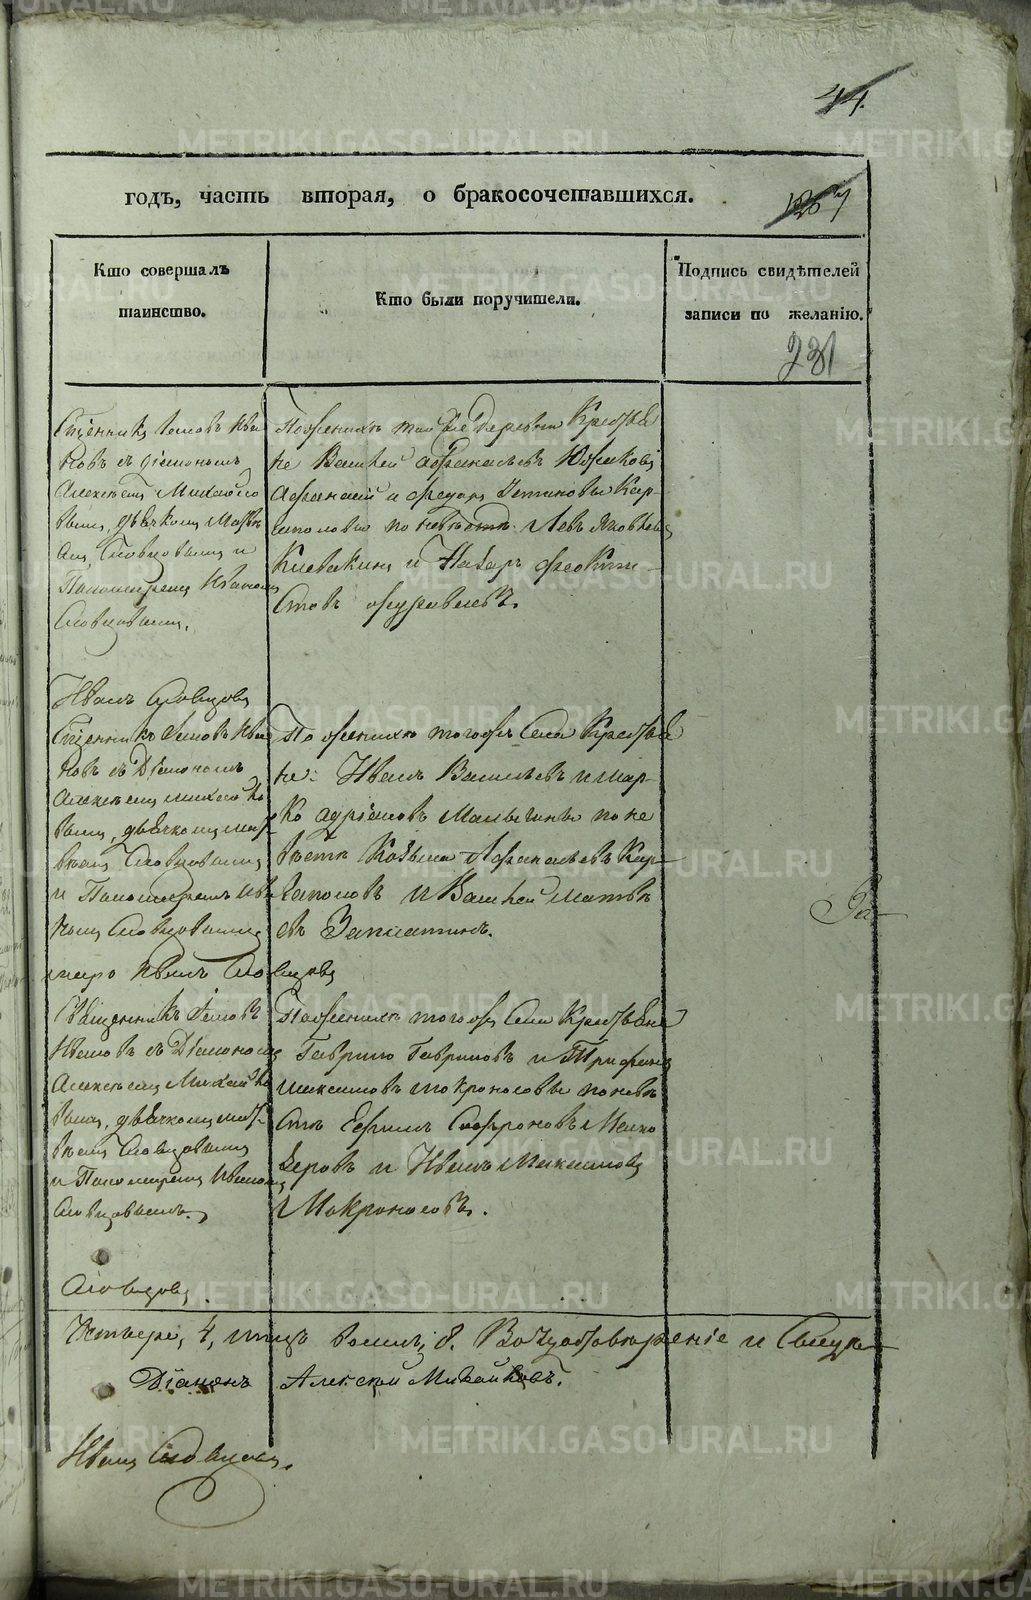 44.
годъ, часть вторая, о бракосочетавшихся.
1267
Кто совершалъ
таинство.
Кто были поручители.
Подпись свидѣтелей
записи по желанію.
231
Сщенникъ Ива
новъ съ діакономъ
Алексеемъ Михайло
вымъ, дьячкомъ Матвѣ
емъ Словцовымъ и
Пономаремъ Иваномъ
Словцовымъ.
По женихѣ той же деревни Крестья
не Василей Афанасьевъ
Афанасий и Федоръ Устиновы Кар
гаполовы по невѣстѣ Левъ Яковлевъ
и Назаръ Феокти-
стовъ Журавлевъ.
Иванъ Словцовъ
Сщенникъ Ива
новъ съ Діакономъ
Алексеемъ Михайло
вымъ, дьячкомъ Мат
вѣемъ Словцовымъ
и Пономаремъ Ива
номъ Словцовымъ
По женихѣ тогожъ Села Крестья
не: Иванъ Васильевъ и Мар-
ко Адріановъ Малыгины по не
вѣстѣ Козьма Афанасьевъ Кар-
гаполовъ и Василей Матвѣ
евъ Заплатинъ.
Иванъ Словцовъ
Ра-
Священникъ
Ивановъ съ Діакономъ
Алексеемъ Михайло
вымъ, дьячкомъ Мат-
вѣемъ Словцовымъ
и Пономаремъ Иваномъ
Словцовымъ.
По женихѣ тогожъ Села Крестьяне
Гаврило Гавриловъ и Трифонъ
Максимовъ Мокроносовы по невѣ
стѣ Ефимъ Софроновъ
и Иванъ Максимовъ
Мокроносовъ.
Словцовъ.
Четыре, 4, лицъ восемь, 8.
Діаконъ Алексѣй Михайловъ.
Иванъ Словцовъ.
METRIKI.GASO-URAL.RU